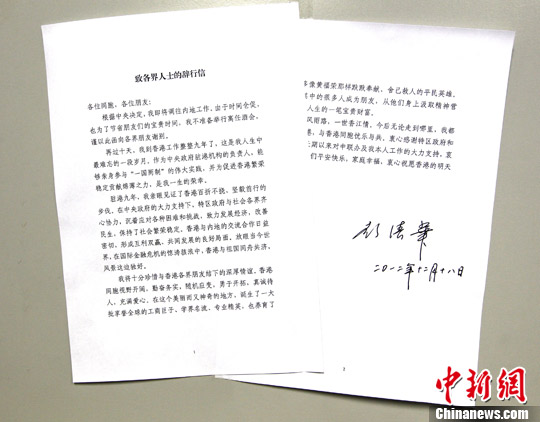 致各界人士的辞行信
各位同胞,各位朋友:
根据中央决定,我即将调往内地工作。由于时间仓促,
也为了节省朋友们的宝贵时间,我不准备举行离任酒会,
谨以此函向各界朋友谢别。
再过十天,我到香港工作整整九年了,这是我人生中
最难忘的一段岁月。作为中央政府驻港机构的负责人,能
够亲身参与“一国两制”的伟大实践,并为促进香港繁荣
稳定贡献绵薄之力,是我一生的荣幸。
驻港九年,我亲眼见证了香港百折不挠、坚毅前行的
步伐。在中央政府的大力支持下,特区政府与社会各界齐
心协力,沉着应对各种困难和挑战,致力发展经济、改善
民生,保持了社会繁荣稳定。香港与内地的交流合作日益
密切,形成互利双赢、共同发展的良好局面。放眼当今世
界,在国际金融危机的惊涛骇浪中,香港与祖国同舟共济,
风景这边独好。
我将十分珍惜与香港各界朋友结下的深厚情谊。香港
同胞视野开阔,勤奋务实,随机应变,勇于开拓,真诚待
人,充满爱心。在这个美丽而又神奇的地方,诞生了一大
批享誉全球的工商巨子、学界名流、专业精英,也养育了
1
像黄福荣那样默默奉献、舍己救人的平民英雄。
中的很多人成为朋友,从他们身上汲取精神营
人生的一笔宝贵财富。
风雨路,一世香江情。今后无论走到哪里,我都
,与香港同胞忧乐与共。衷心感谢特区政府和
期以来对中联办及我本人工作的大力支持,衷
们平安快乐,家庭幸福,衷心祝愿香港的明天
彭清华
二〇一二年十二月十八日
2
中新网
Chinanews.com